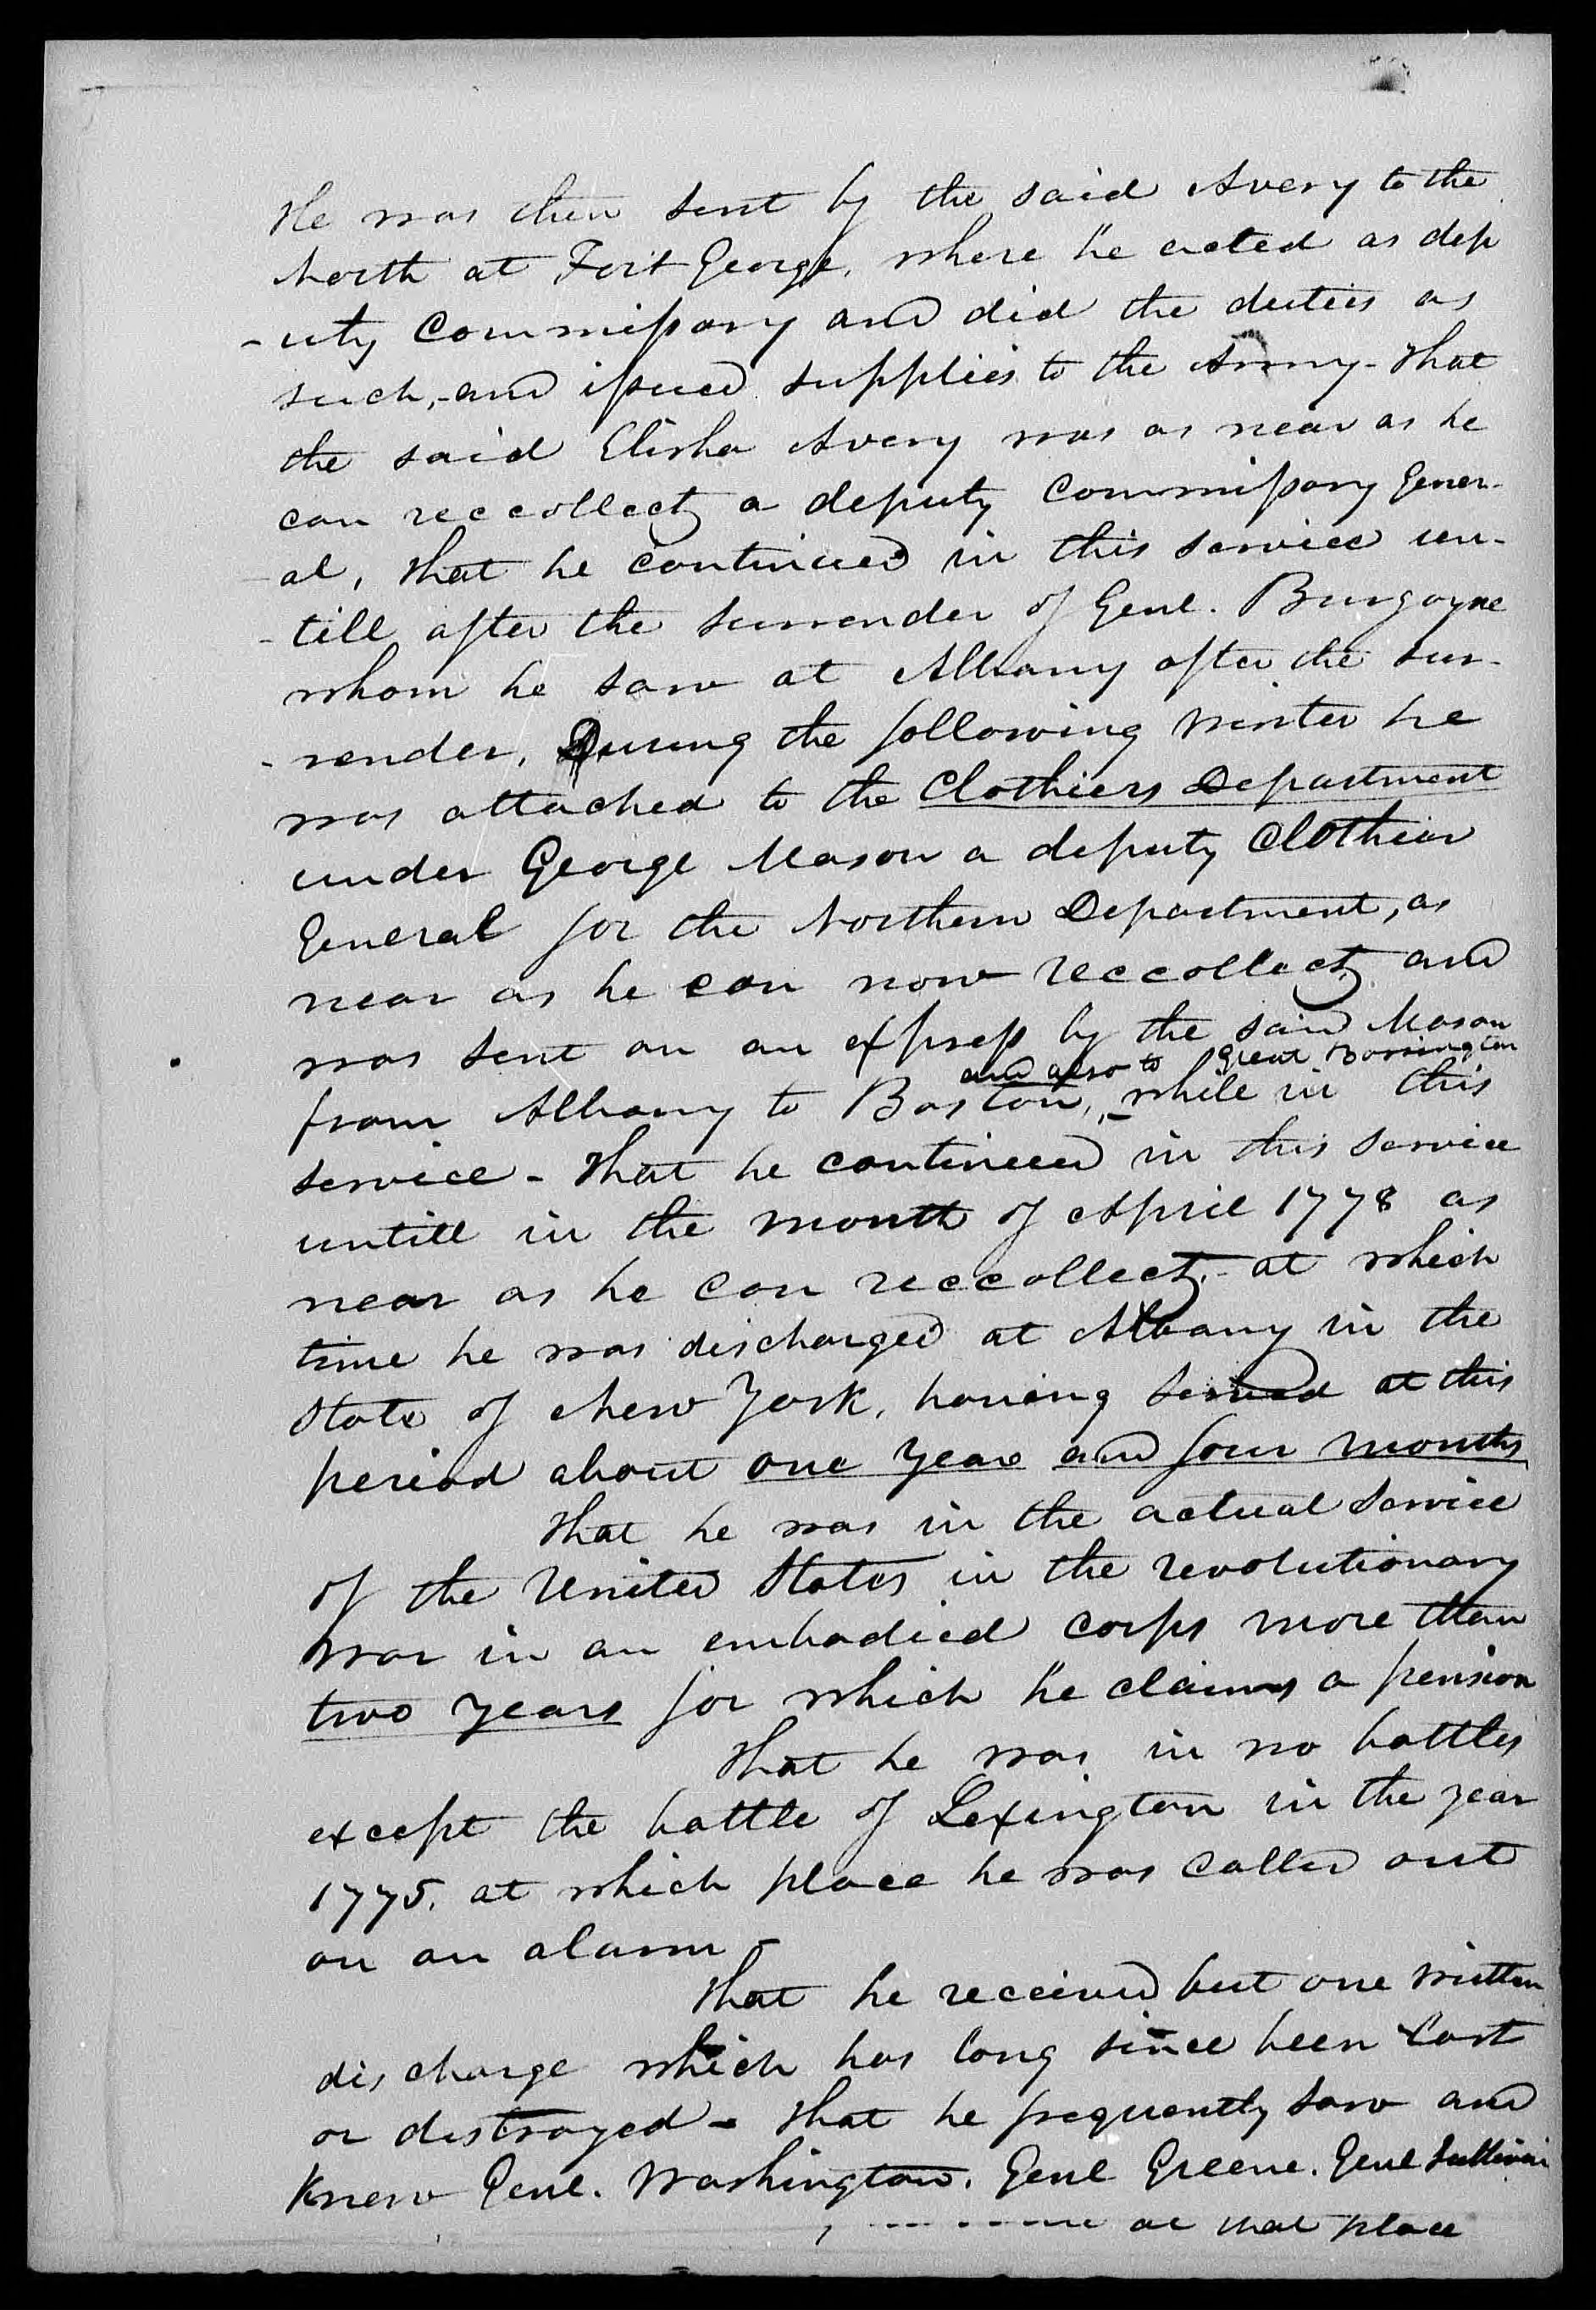 He was then sent by the said Avery to the
North at Fort George, where he acted as dep
-uty Commissary and did the duties as
such,-and issued supplies to the Army-that
the said Elisha Avery was as near as he
can reccollect, a deputy Commissary Gener-
-al, that he continued in this service un-
-till after the surrender of Genl. Burgoyne
whom he saw at Albany after the sur-
-render, During the following winter he
was attached to the Clothiers Department
under George Mason a deputy Clothier
General for the Northern Department, as
near as he can now reccollect, and
was sent on an express by the said Mason
and also to Great Barrington
from Albany to Boston, while in this
service - that he continued in this service
untill in the month of April 1778 as
near as he can reccollect, at which
time he was discharged at Albany in the
State of New York, having served at this
period about one year and four months
that he was in the actual service
of the United States in the revolutionary
war in an embodied corps more than
two years for which he claims a pension
that he was in no battles
except the battle of Lexington in the year
1775, at which place he was called out
on an alarm -
that he received but one written
discharge which has long since been lost
or destroyed - that he frequently saw and
knew Genl. Washington. Genl Greene. Genl Sullivan
at that place